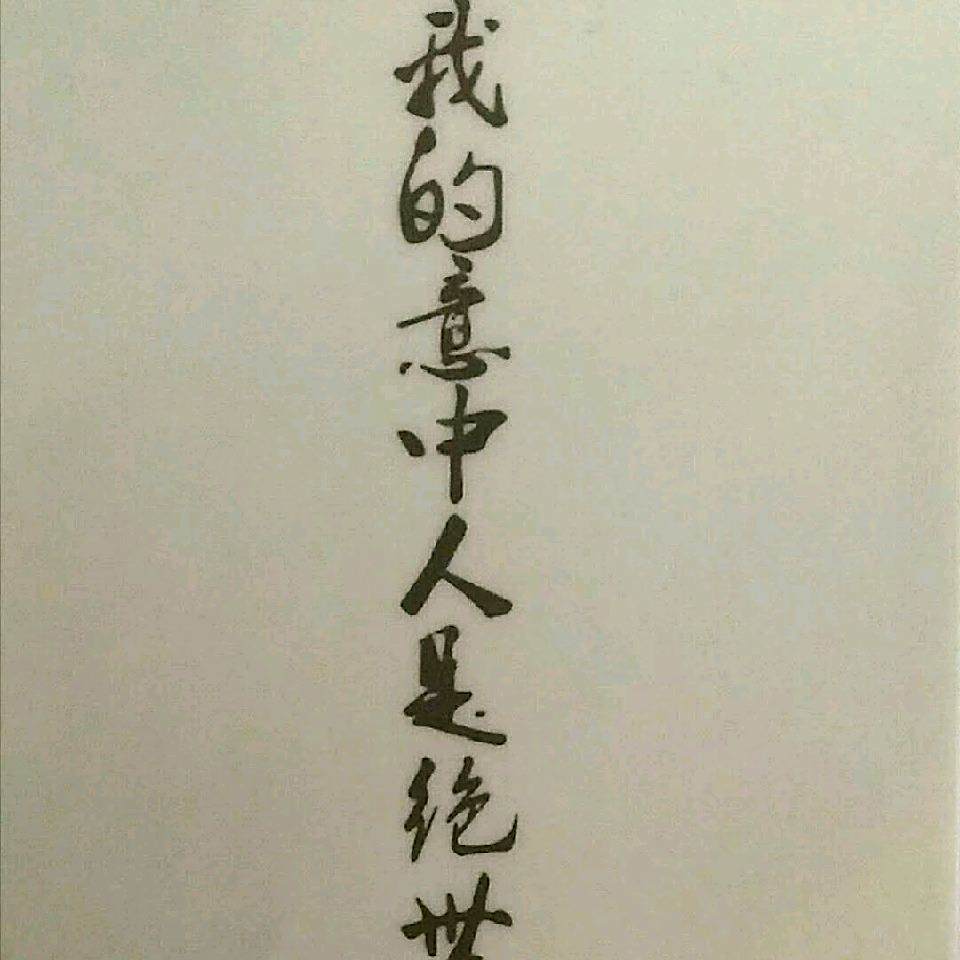 我的意中人是绝世